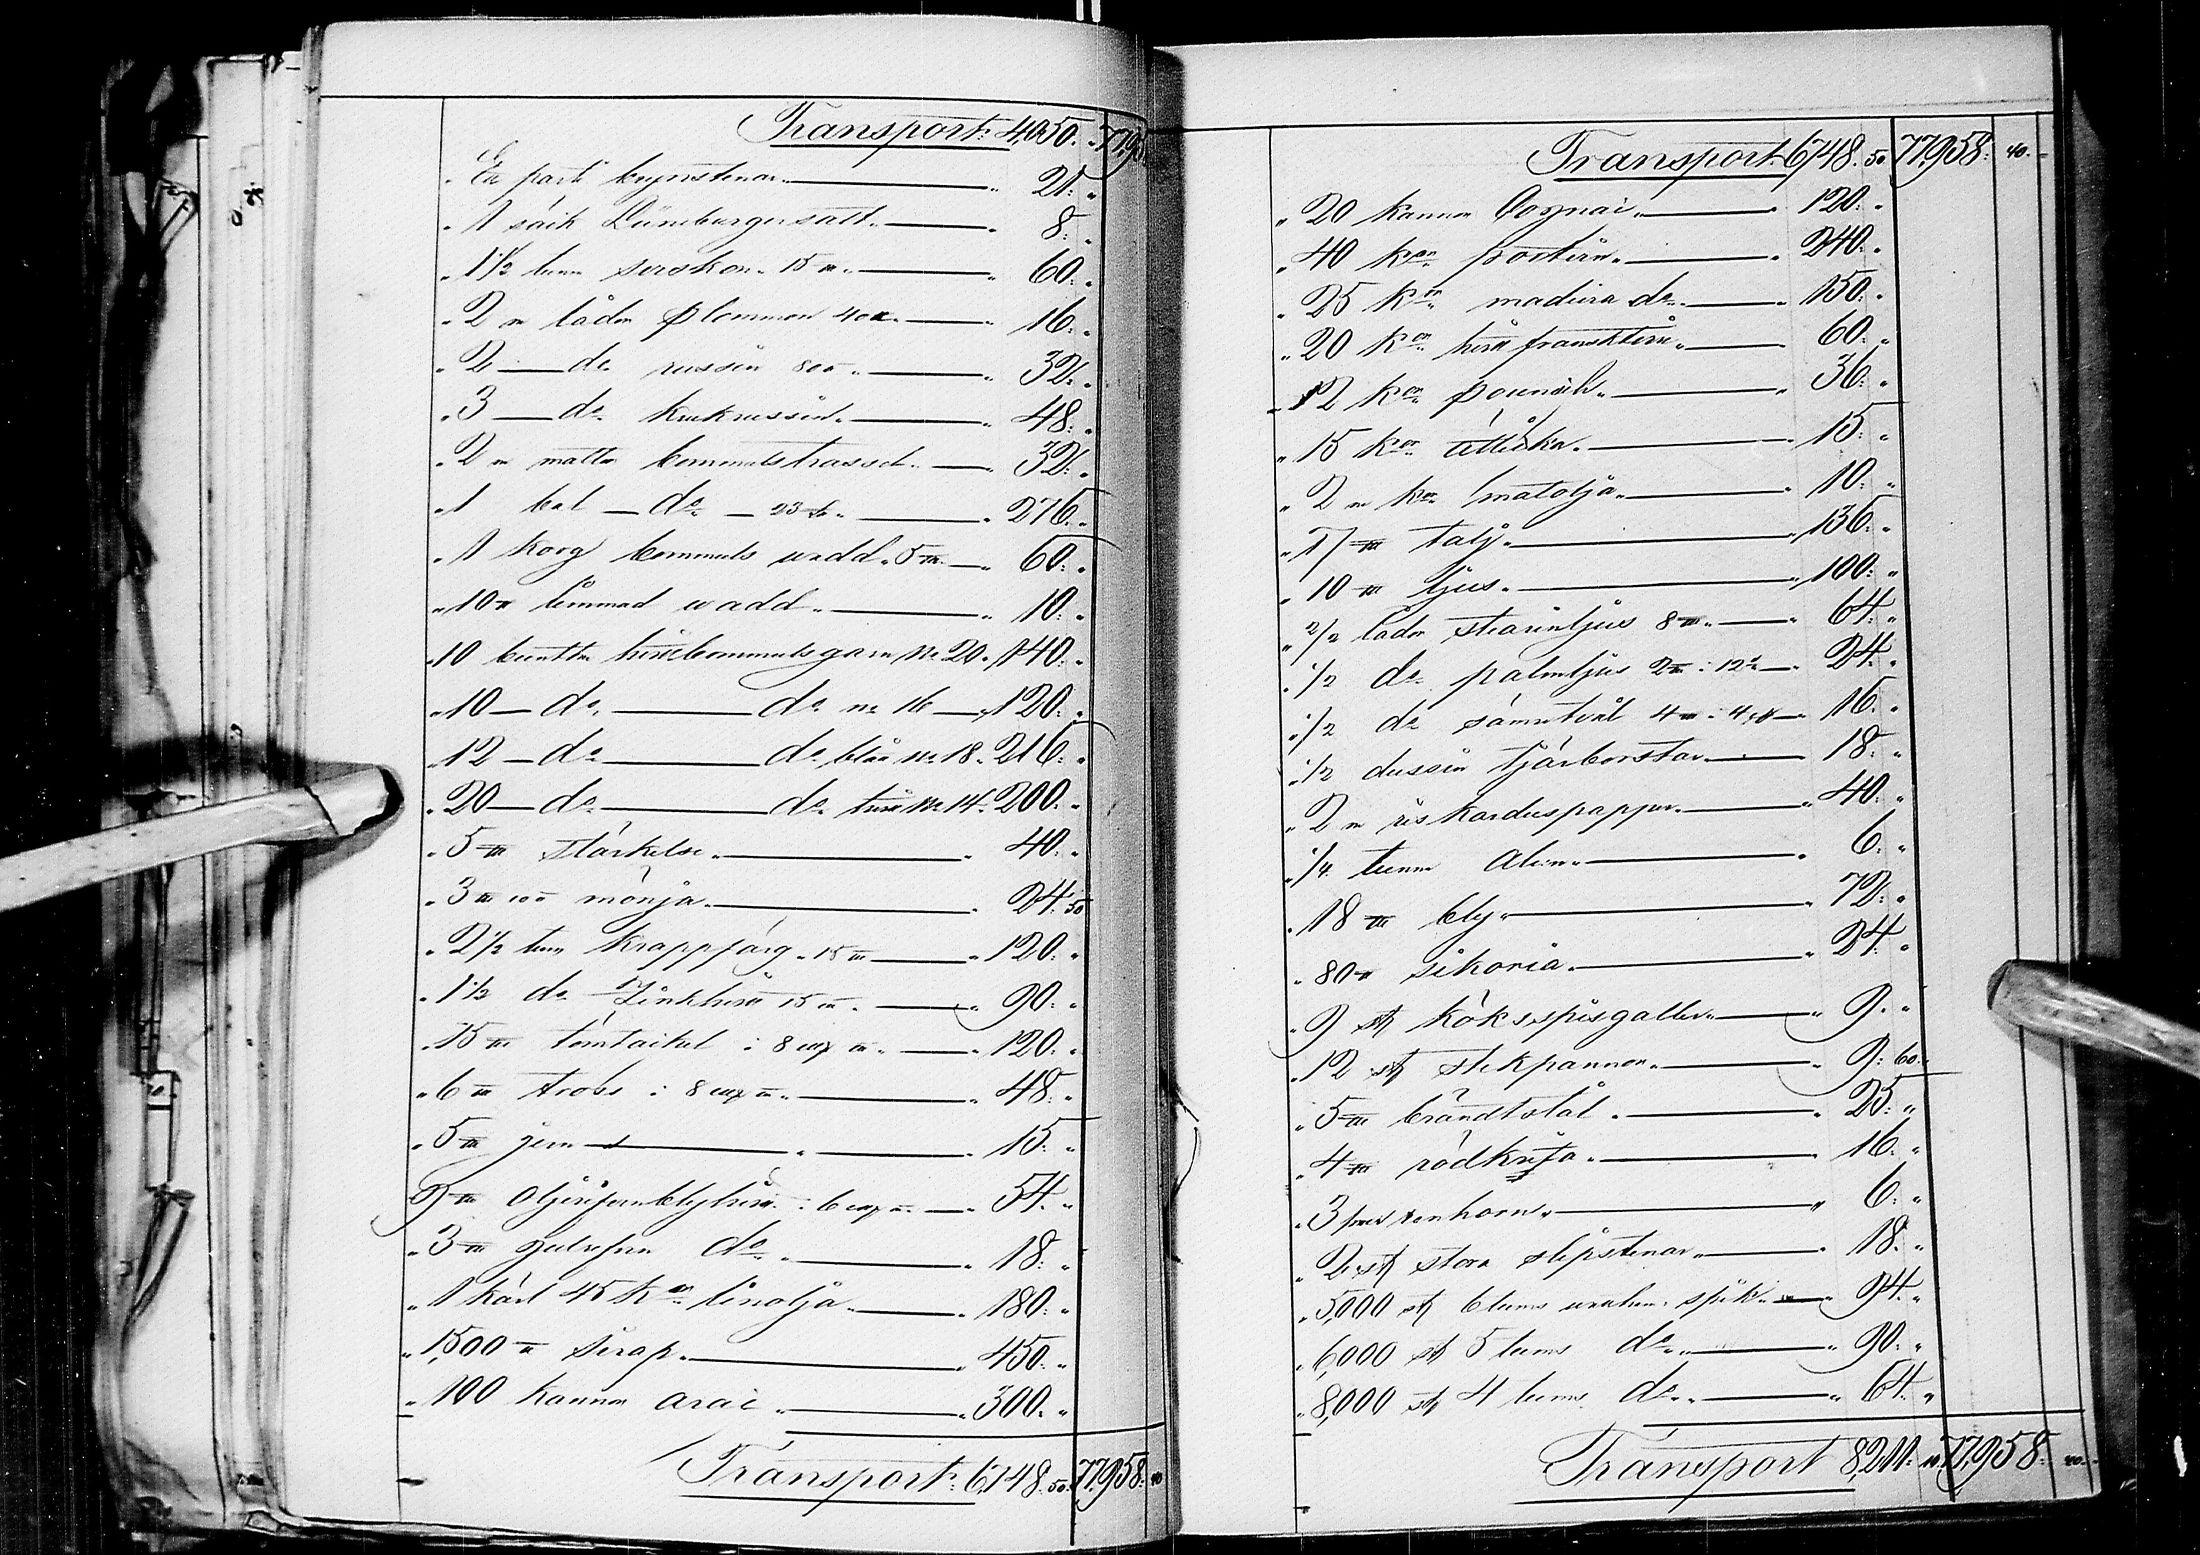 Transport: 4,050. " 77,95
En parti brynstenar. " 21: "
" 1 säck Lüneburgersalt. " 8: "
" 1 1/2 tunn socskor. 15 ". " 60: "
" 2 ne lådor plommon 40 ". " 16: "
" 2 — do russin 800 ". " 32: "
" 3 — do krukrussin. " 48: "
" 2 ne mattor bommulstrassel. " 32: "
" 1 bal — do — 23 ". " 276. "
" 1 korg bommuls wadd. 5 ". " 60: "
" 10 limmad wadd. " 10: "
" 10 buntter hvitt bommulsgarn No 20. " 140: "
" 10 — do. — do. No 16 — " 120: "
" 12 — do — do. blått No 18. " 216: "
" 20 — do — do. hvitt No 14. " 200: "
" 5 stärkelse. " 40: "
" 3 100 mönja. " 24: 50
" 2 1/2 tunn krappfärg. 15 " 120: "
" 1 1/2 do Zinkhvitt 15 ". " 90: "
" 15 tömtackel : 8 " 120: "
" 6 tross : 8 " 48: "
" 5 jern " 15: "
" 9 Oljerifven blyhvitt : 6 " 54: "
" 3 gulrifven do " 18: "
" 1 kärl 45 kor linolja. " 180: "
" 1,500 sirap. " 450: "
" 100 kannor arac " 300. "
Transport: 6,748. 50. 77,958: 40
Transport: 6,748. 50 77,958: 40. "
" 20 kannor Cognac. " 120: "
" 40 kor portvin. " 240: "
" 25 kor madeira do. " 150: "
" 20 kor hvitt franskt vin. " 60: "
" 12 kor pounsch. " 36: "
" 15 kor ätticka. " 15: "
" 2 ne kor matolja. " 10: "
" 17 talg. " 136: "
" 10 ljus. " 100: "
" 2/2 lådor stearinljus 8 ". " 64: "
" 1/2 do palmljus 2 : 12 " 24: "
" 1/2 do såmtvål 4 : 4 " 16. "
" 1/2 dussin tjärborstar. " 18: "
" 2 ne ris karduspapper. " 40: "
" 1/4 tunn alun. " 6: "
" 18 bly. " 72: "
" 80 sikoria. " 24: "
" 9 st köksspisgaller. " 9: "
" 12 st stekpannor. " 9: 60. "
" 5 brändtstål. " 25: "
" 4 rödkrita. " 16: "
" 3 renhorn. " 6: "
" 2 st stora slipstenar. " 18: "
" 5,000 st 6 tums spik. " 94. "
" 6,000 st 5 tums do. " 90: "
" 8,000 st 4 tums do. " 64: "
Transport 8,211: 10 77,958: 40. "